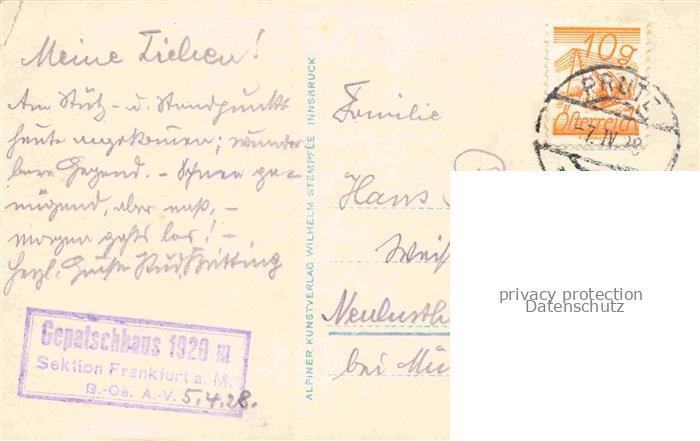 Meine Lieben!
Am Stütz- u. Standpunkt
heute angekommen; wunder
bare Gegend. - Schnee ge-
nügend, aber naß, -
morgen gehts los! -
Herzl. Grüße
Gepatschhaus 1928 m
Sektion Frankfurt a. M.
D.-Oe. A.-V. 5.4.28.
ALPINER KUNSTVERLAG WILHELM STEMPFLE INNSBRUCK
10g
Österreich
PRUTZ
-7.IV.28
Familie
Hans
Neulusth
bei Mü
privacy protection
Datenschutz